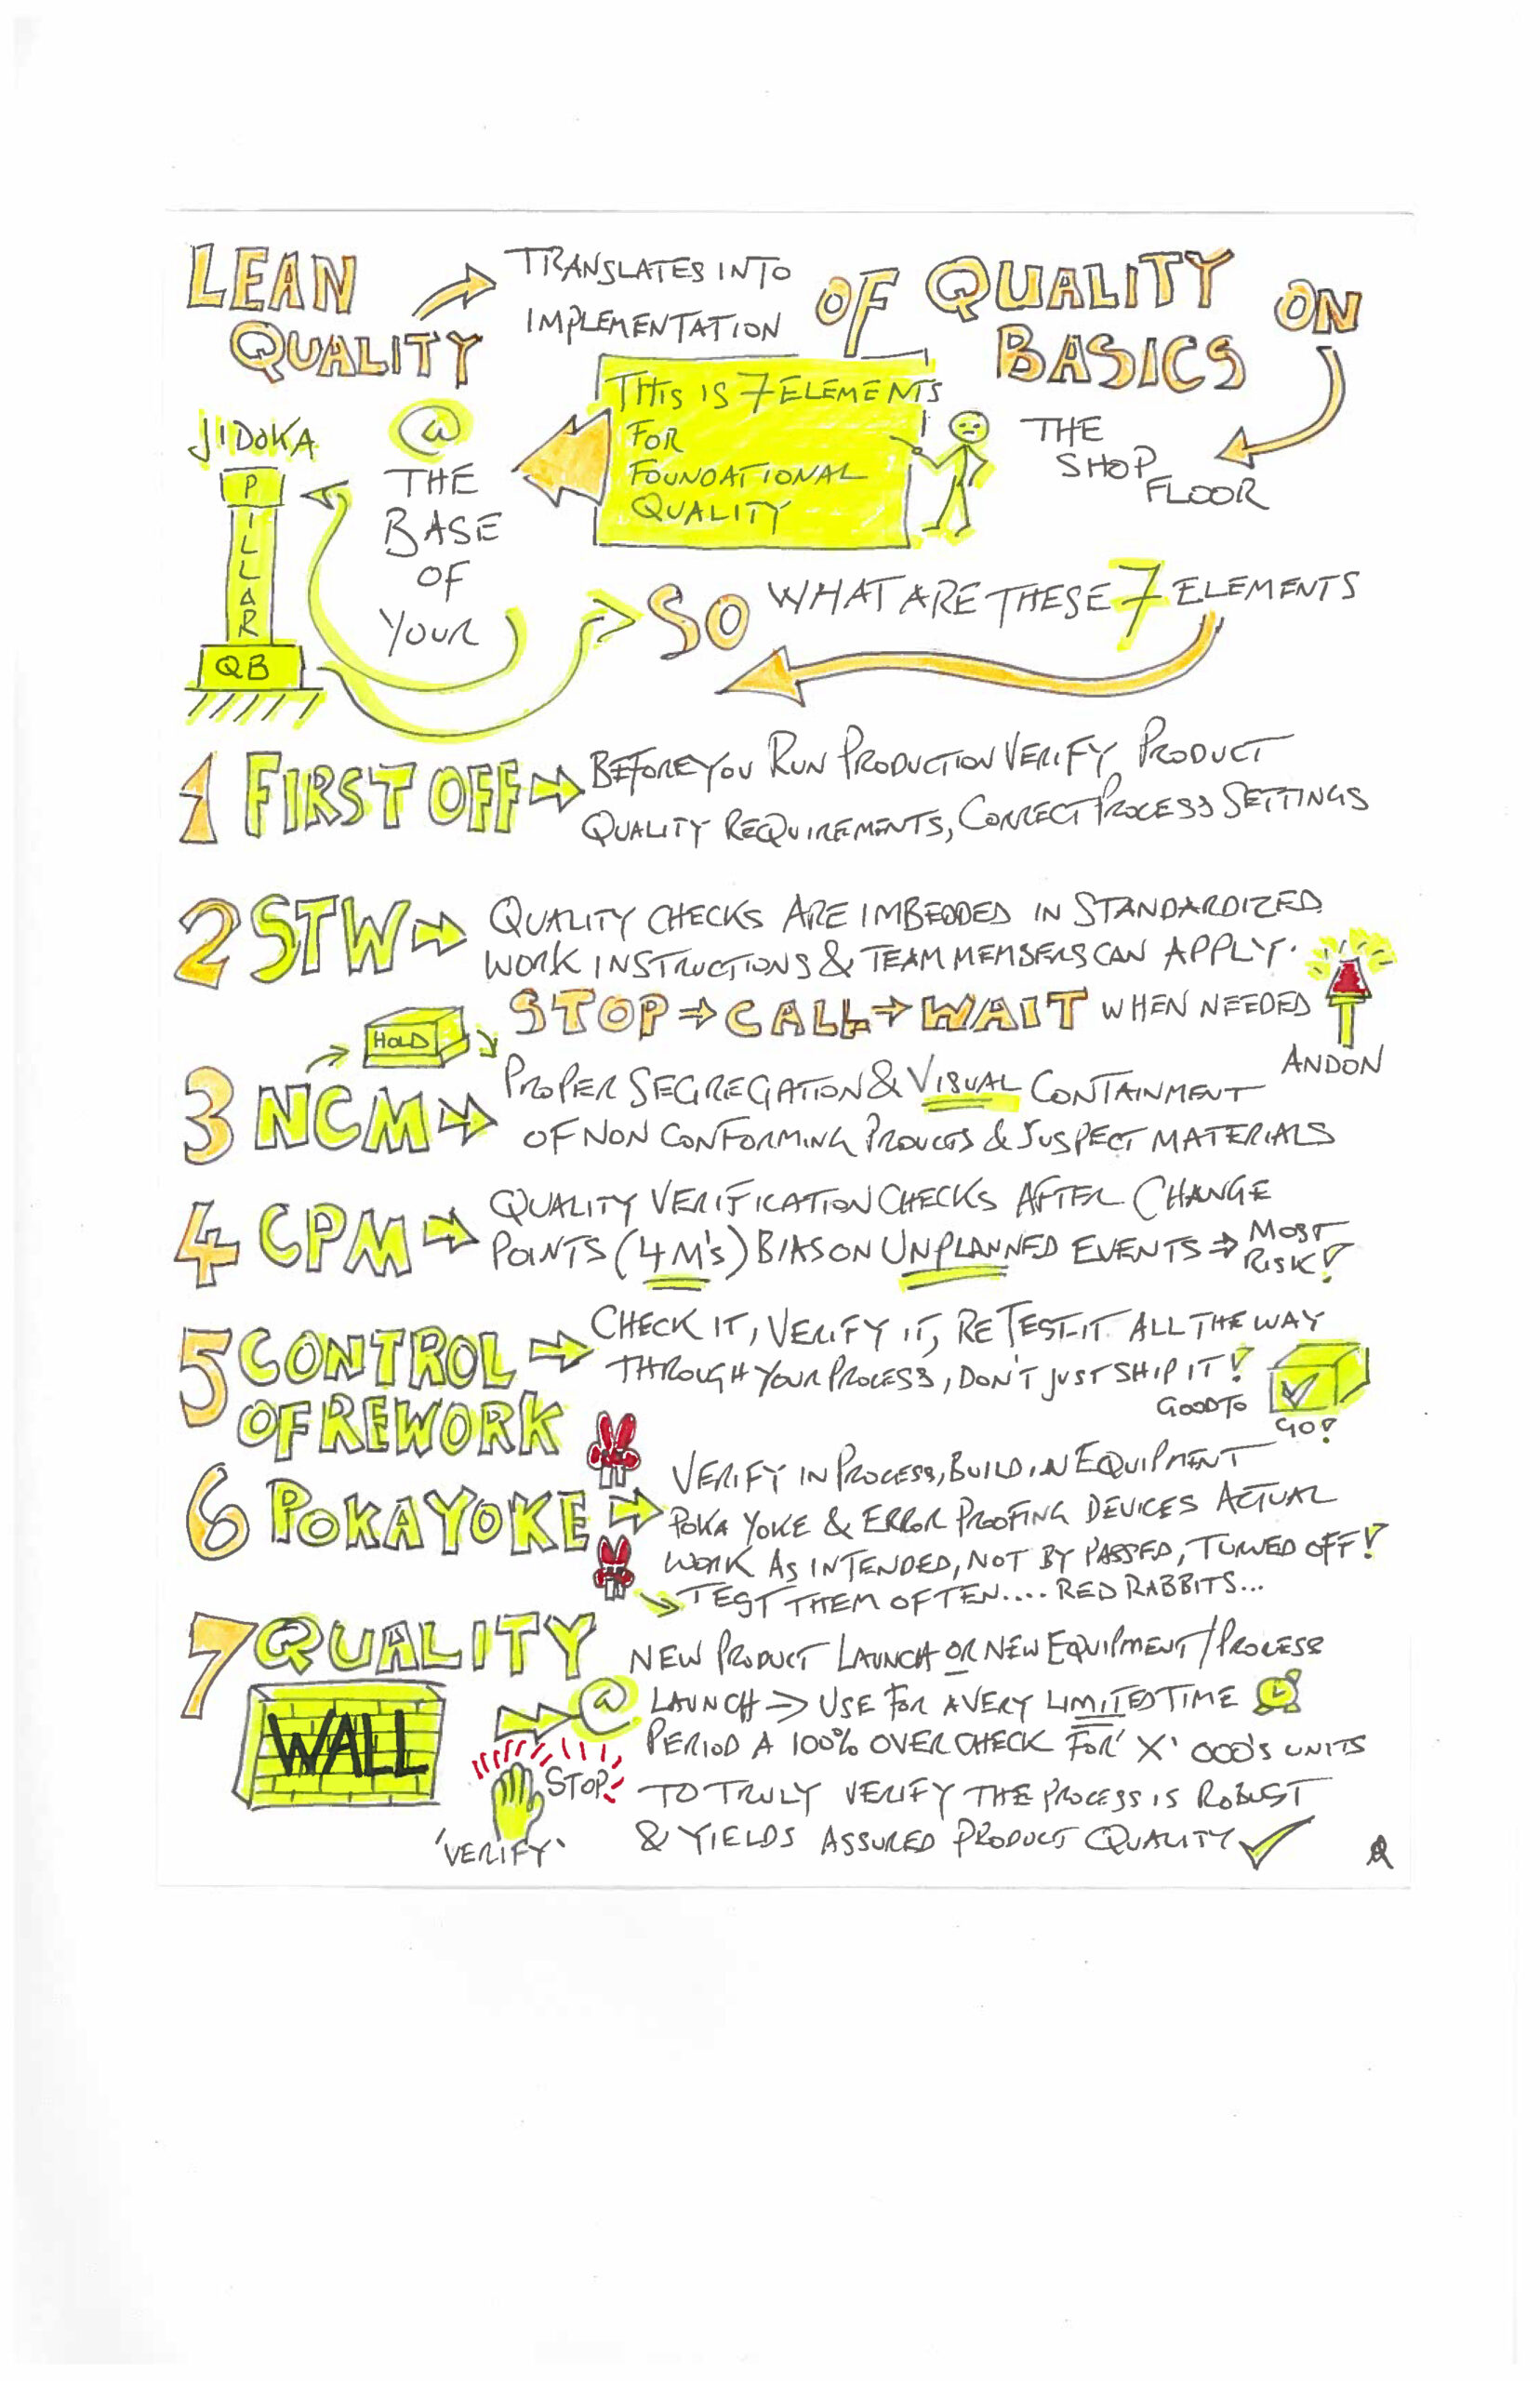 LEAN
QUALITY
TRANSLATES INTO
IMPLEMENTATION
OF QUALITY
BASICS
ON
THE
SHOP
FLOOR
THIS IS 7 ELEMENTS
FOR
FOUNDATIONAL
QUALITY
@
THE
BASE
OF
YOUR
JIDOKA
PILLAR
QB
SO WHAT ARE THESE 7 ELEMENTS
1 FIRST OFF
BEFORE YOU RUN PRODUCTION VERIFY PRODUCT
QUALITY REQUIREMENTS, CORRECT PROCESS SETTINGS
2 STW
QUALITY CHECKS ARE IMBEDDED IN STANDARDIZED
WORK INSTRUCTIONS & TEAM MEMBERS CAN APPLY.
STOP CALL WAIT WHEN NEEDED
ANDON
HOLD
3 NCM
PROPER SEGREGATION & VISUAL CONTAINMENT
OF NON CONFORMING & SUSPECT MATERIALS
4 CPM
QUALITY VERIFICATION CHECKS AFTER CHANGE
POINTS (4 M's) BIAS ON UNPLANNED EVENTS ⇒ MOST
RISK!
5 CONTROL
OF REWORK
CHECK IT, VERIFY IT, RE TEST-IT ALL THE WAY
THROUGH YOUR PROCESS, DON'T JUST SHIP IT!
GOOD TO
GO!
6 POKA YOKE
VERIFY IN PROCESS, BUILD IN EQUIPMENT
POKA YOKE & ERROR PROOFING DEVICES ACTUAL
WORK AS INTENDED, NOT BY PASSED, TURNED OFF!
TEST THEM OFTEN.... RED RABBITS...
7 QUALITY
WALL
NEW PRODUCT LAUNCH OR NEW EQUIPMENT/PROCESS
@ LAUNCH ⇒ USE FOR A VERY LIMITED TIME
PERIOD A 100% OVER CHECK FOR 'X' 000'S UNITS
TO TRULY VERIFY THE PROCESS IS ROBUST
& YIELDS ASSURED PRODUCT QUALITY
STOP
'VERIFY'